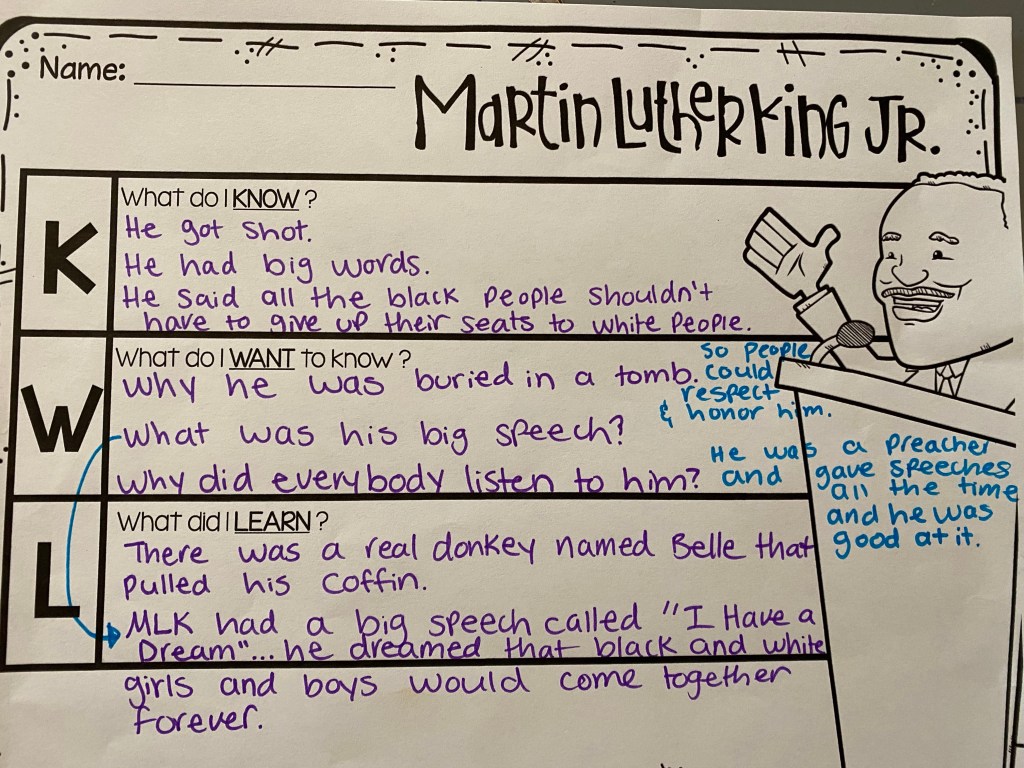 Name:
Martin Luther King Jr.
K
What do I KNOW?
He got shot.
He had big words.
He said all the black people shouldn't
have to give up their seats to white people.
W
What do I WANT to know?
Why he was buried in a tomb.
so people
could
respect
& honor him.
What was his big speech?
Why did everybody listen to him?
He was a preacher
and gave speeches
all the time
and he was
good at it.
L
What did I LEARN?
There was a real donkey named Belle that
pulled his coffin.
MLK had a big speech called "I Have a
Dream"... he dreamed that black and white
girls and boys would come together
forever.